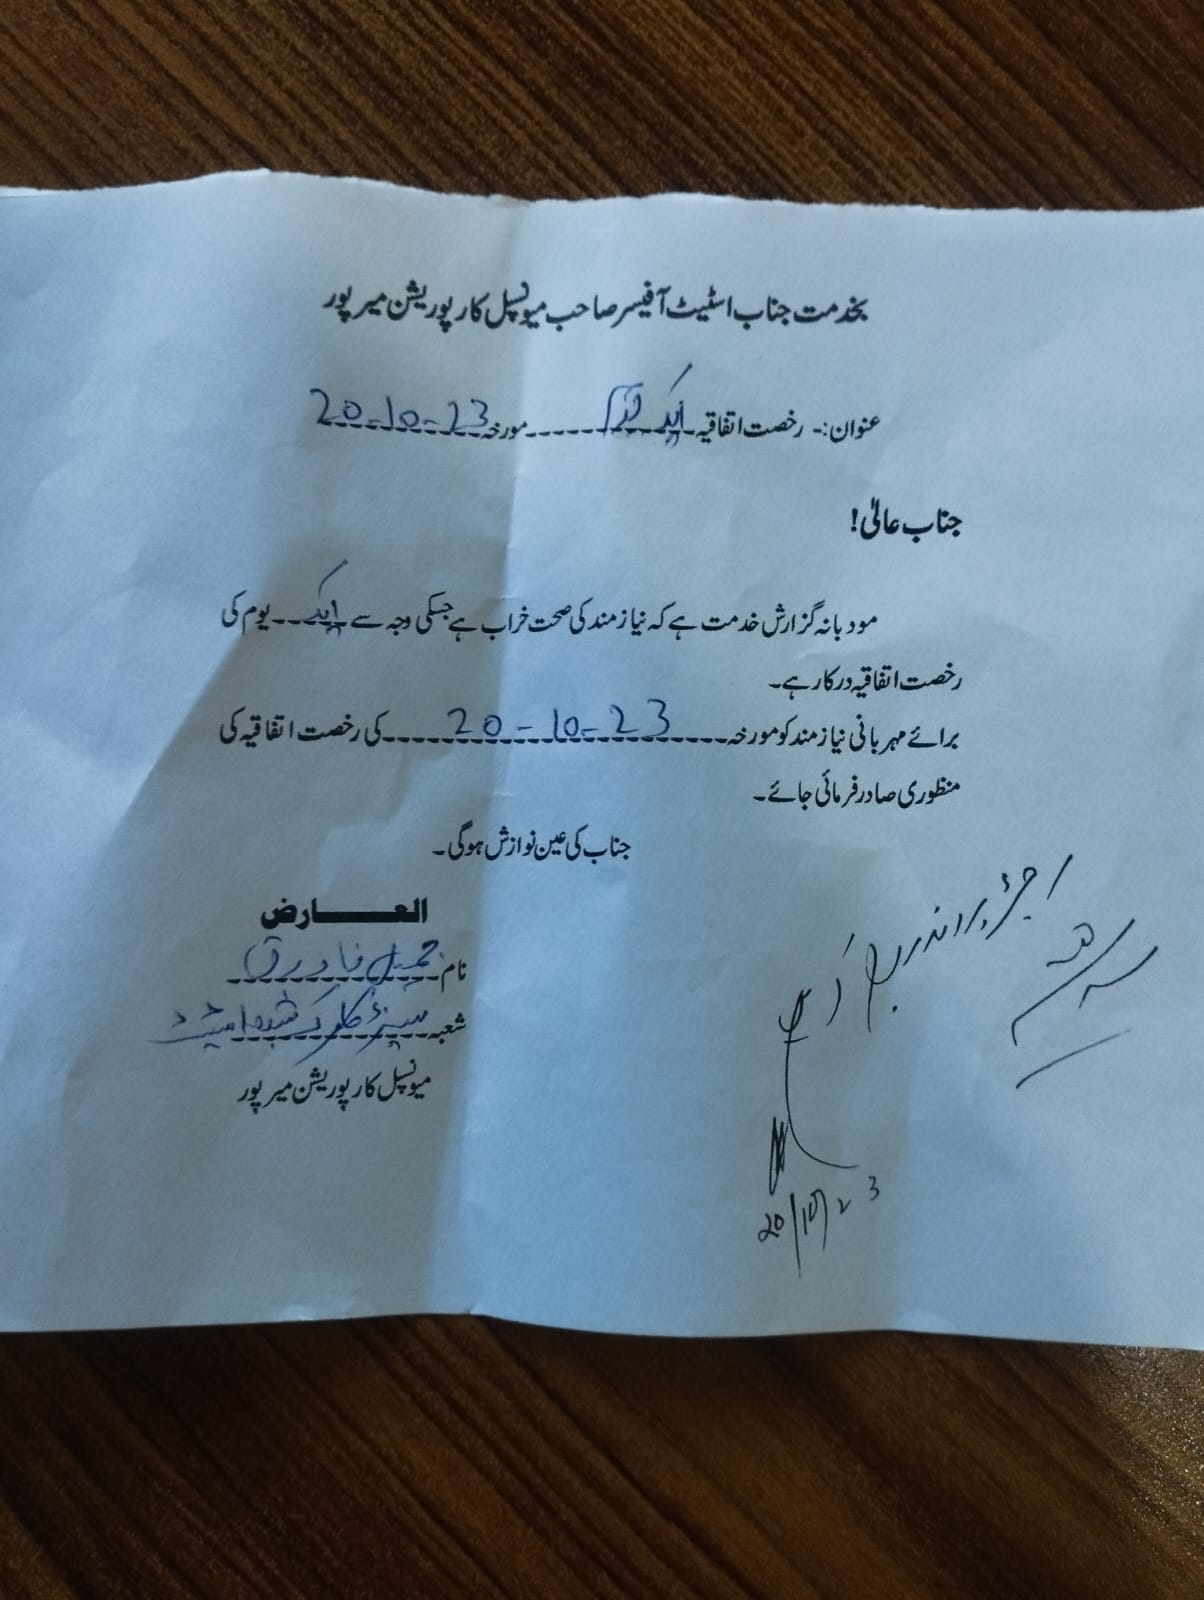 بخدمت جناب اسٹیٹ آفیسر صاحب میونسپل کارپوریشن میرپور
عنوان:۔ رخصت اتفاقیہ ایک یوم مورخہ 20-10-23
جناب عالیٰ!
مودبانہ گزارش خدمت ہے کہ نیازمند کی صحت خراب ہے جسکی وجہ سے ایک یوم کی
رخصت اتفاقیہ درکار ہے۔
برائے مہربانی نیازمند کو مورخہ 20-10-23 کی رخصت اتفاقیہ کی
منظوری صادر فرمائی جائے۔
جناب کی عین نوازش ہوگی۔
العارض
نام جمیل
شعبہ سینئر کلرک شعبہ اسٹیٹ
میونسپل کارپوریشن میرپور
20/10/23